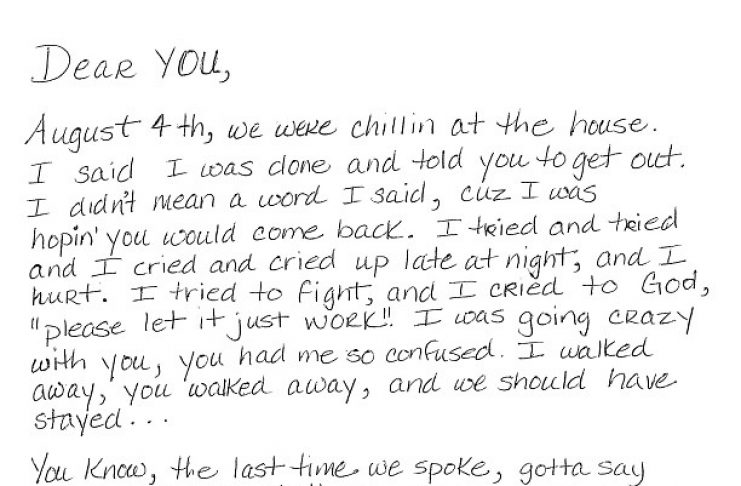 Dear YOU,
August 4th, we were chillin at the house.
I said I was done and told you to get out.
I didn't mean a word I said, cuz I was
hopin' you would come back. I tried and tried
and I cried and cried up late at night, and I
hurt. I tried to fight, and I cried to God,
"please let it just work!" I was going crazy
with you, you had me so confused. I walked
away, you walked away, and we should have
stayed...
You know, the last time we spoke, gotta say